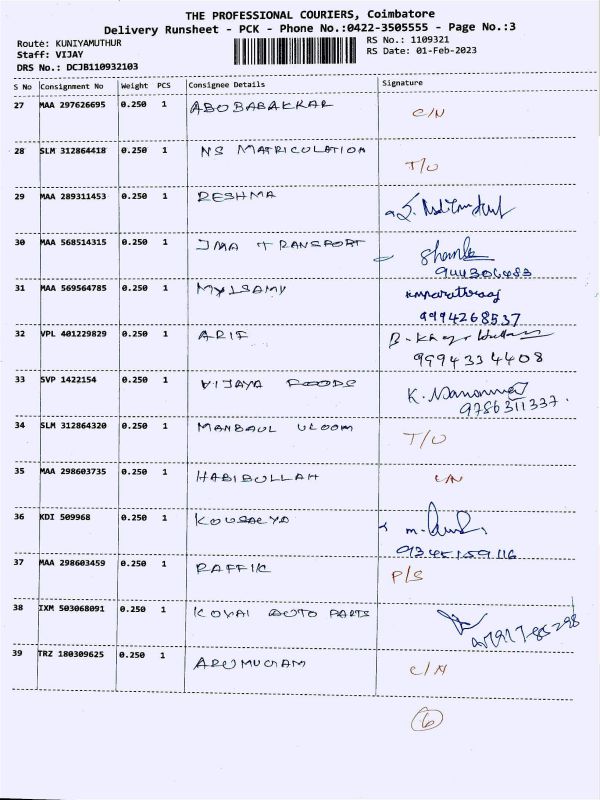 THE PROFESSIONAL COURIERS, Coimbatore
Delivery Runsheet - PCK - Phone No.:0422-3505555 - Page No.:3
Route: KUNIYAMUTHUR RS No.: 1109321
Staff: VIJAY RS Date: 01-Feb-2023
DRS No.: DCJB110932103
S No Consignment No Weight PCS Consignee Details Signature
27 MAA 297626695 0.250 1 ABOBABAKKAR C/N
28 SLM 312864418 0.250 1 NS MATRICULATION T/U
29 MAA 289311453 0.250 1 RESHMA
30 MAA 568514315 0.250 1 JMA TRANSPORT
31 MAA 569564785 0.250 1 MYLSAMY
9994268537
32 VPL 401229829 0.250 1 ARIF
9994334408
33 SVP 1422154 0.250 1 VIJAYA FOODS
9786311337.
34 SLM 312864320 0.250 1 MANBAUL ULOOM T/U
35 MAA 298603735 0.250 1 HABIBULLAH C/N
36 KDI 509968 0.250 1 KOUSALYA
37 MAA 298603459 0.250 1 RAFFIK P/S
38 IXM 503068091 0.250 1 KOVAI AUTO PARTS
39 TRZ 180309625 0.250 1 ARUMUGAM C/N
6